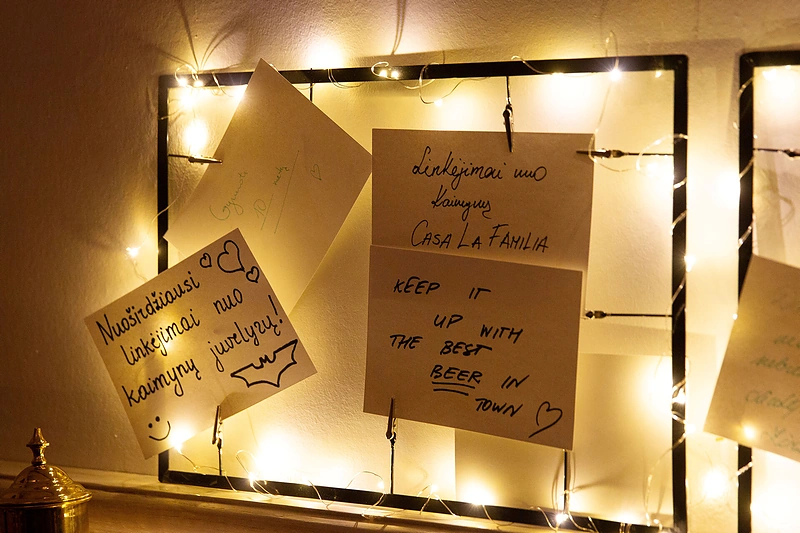 Linkėjimai nuo
Kaimynų
CASA LA FAMILIA
KEEP IT
UP WITH
THE BEST
BEER IN
TOWN
Nuoširdžiausi
linkėjimai nuo
kaimynų juvelyrų!